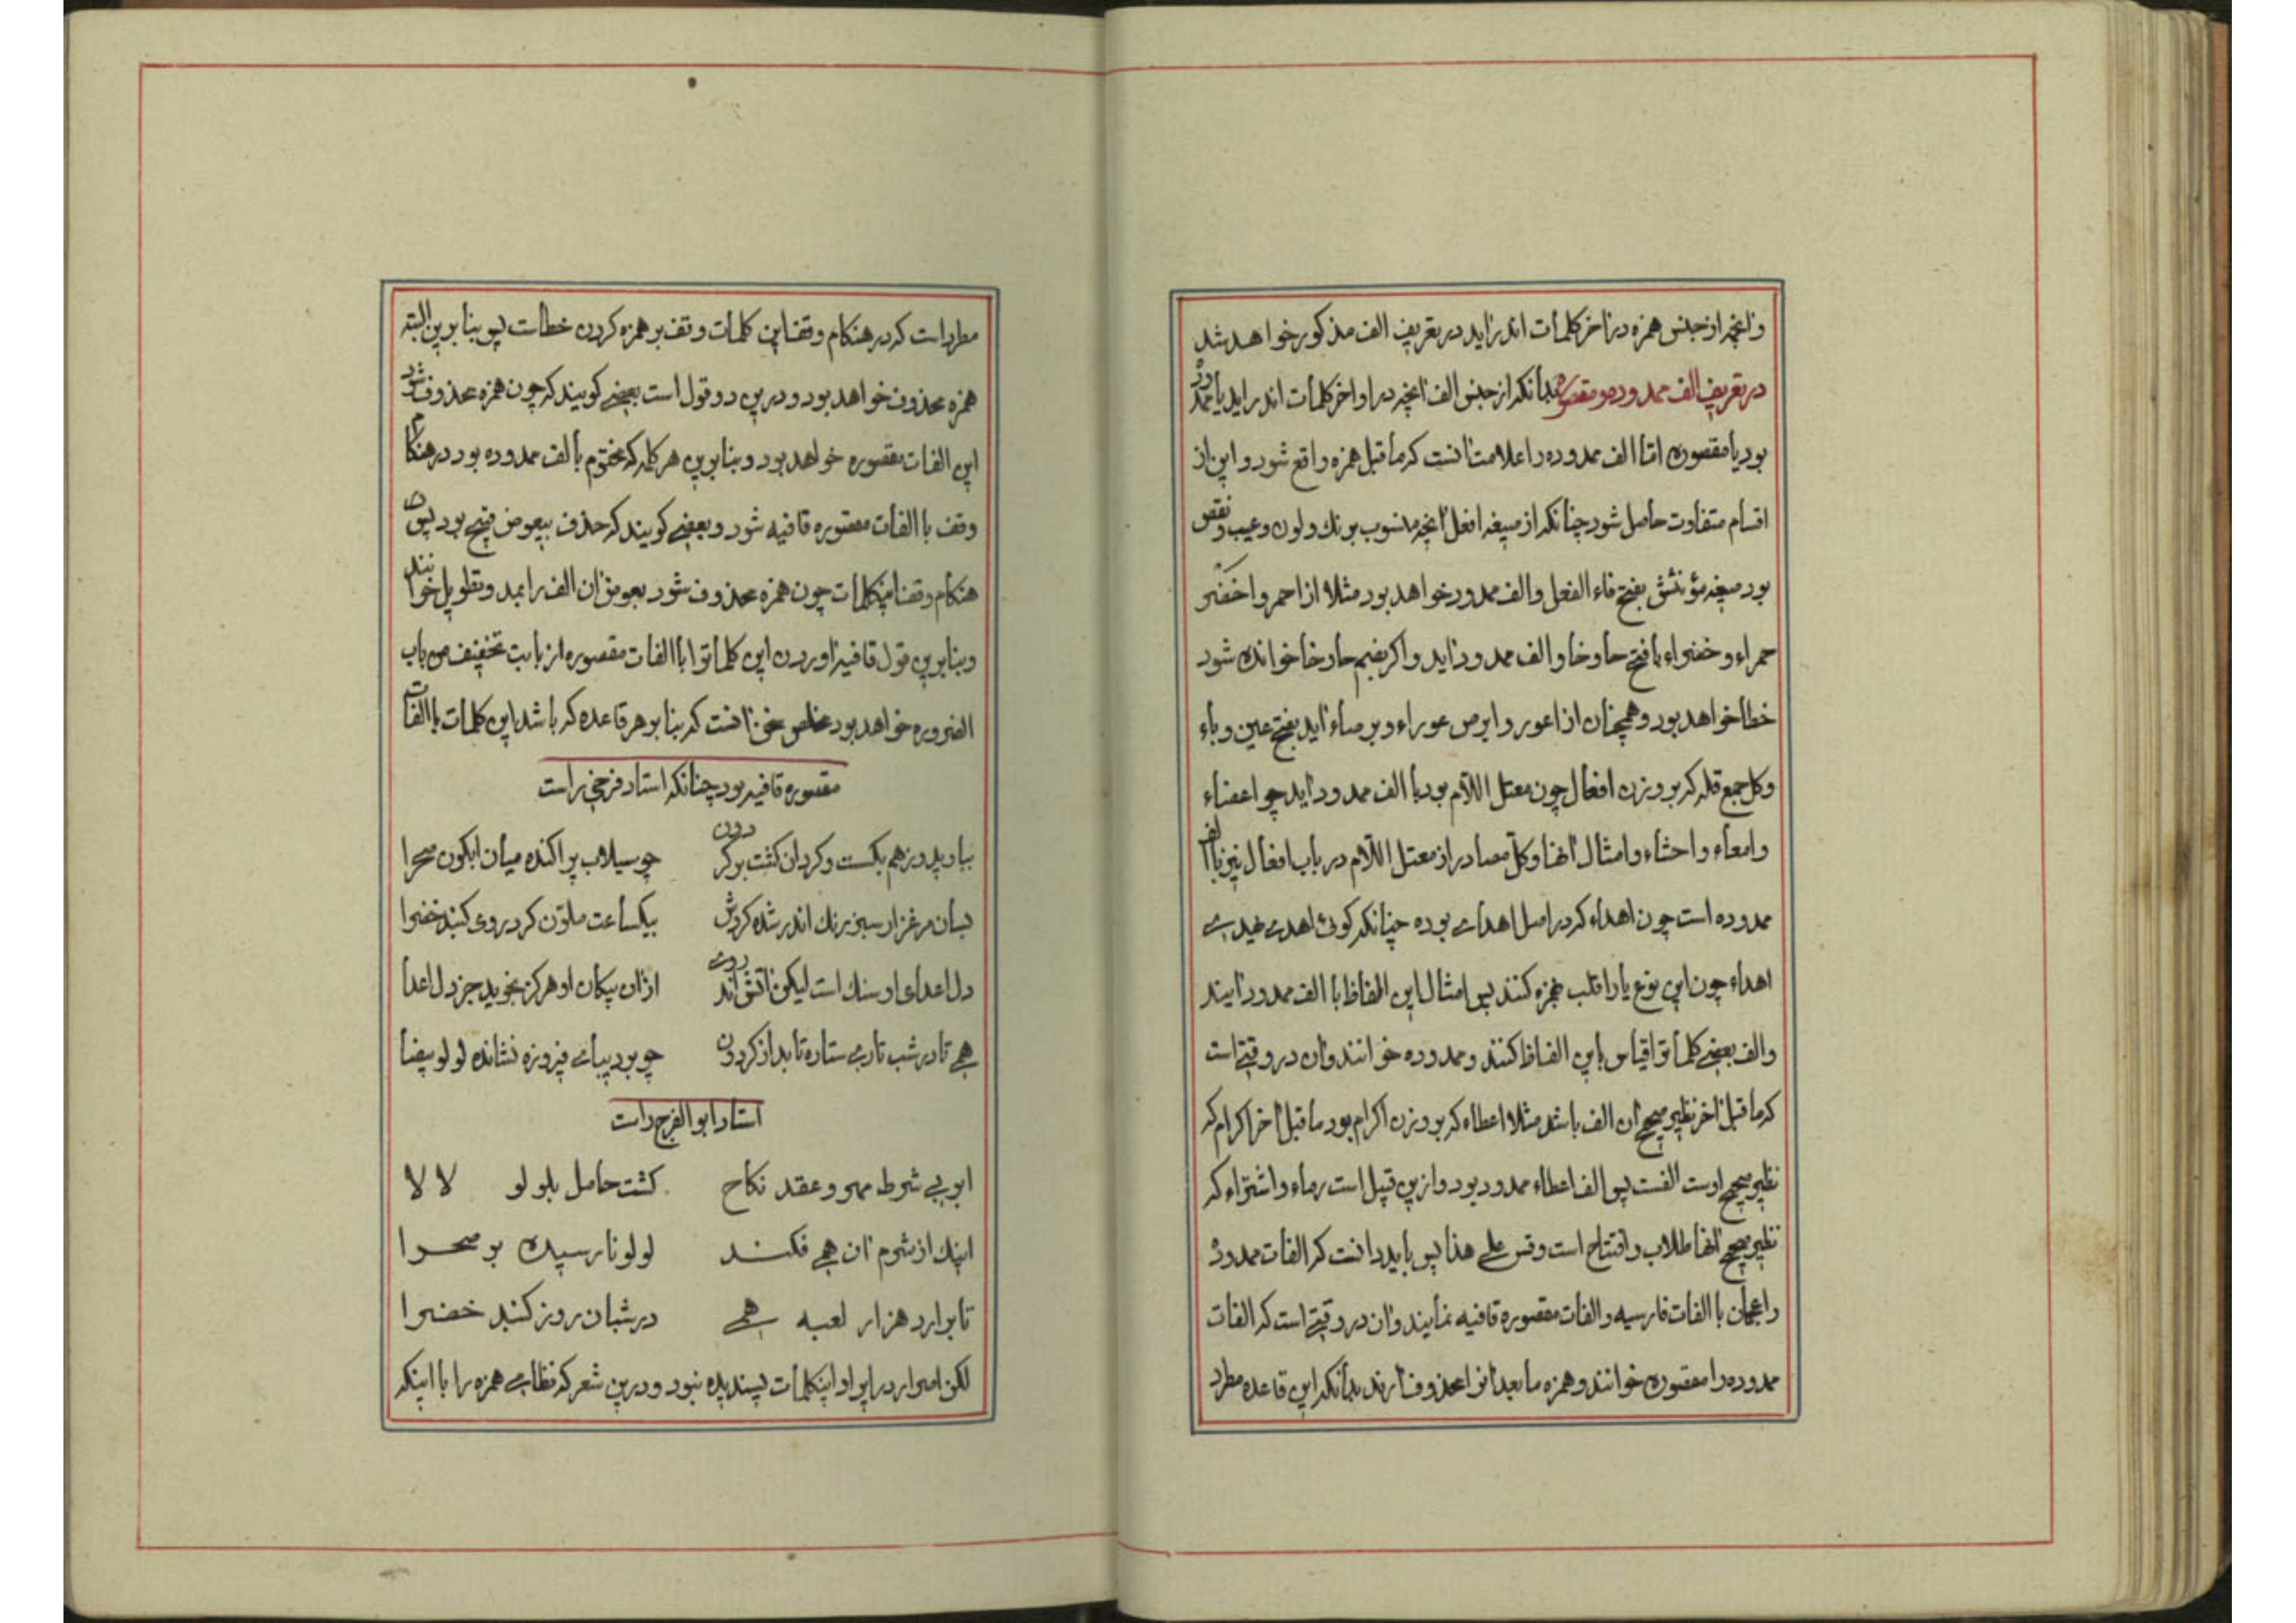 وانچه از جنس همزه در اخر کلمات اندر اید در تعریف الف مذکور خواهد شد
در تعریف الف ممدوده و مقصوره بدانکه از جنس الف انچه در اواخر کلمات اندر اید یا ممدوده
بود یا مقصوره اما الف ممدوده را علامت انست که ماقبل همزه واقع شود و این از
اقسام متفاوت حاصل شود چنانکه از صیغه افعل انچه منسوب برنك و لون و عیب و نقص
بود صیغه مؤنثش بفتح فاء الفعل و الف ممدود خواهد بود مثلا از احمر و اخضر
حمراء و خضراء با فتح حا و خا و الف ممدود اید و اکر بضم حا و خا خوانده شود
خطا خواهد بود و همچنان از اعور و ابرص عوراء و برصاء اید بفتح عین و باء
و کل جمع قله که بر وزن افعال چون معتل اللام بود با الف ممدود اید چو اعضاء
و امعاء و احشاء و امثال انها و کل مصادر از معتل اللام در باب افعال نیز با الف
ممدوده است چون اهداء که در اصل اهدای بوده چنانکه کوئی اهدی یهدی
اهداء چون این نوع یا را قلب بهمزه کنند پس امثال این الفاظ با الف ممدود ایند
و الف بعضی کلمات را قیاس باین الفاظ کنند و ممدوده خوانند و ان در وقتی است
که ماقبل اخر نظیر صحیح ان الف باشد مثلا اعطاء که بر وزن اکرام بود ماقبل اخر اکرام که
نظیر صحیح اوست الفست پس الف اعطاء ممدود بود و ازین قبیل است رماء و اشتراء که
نظیر صحیح انها طلاب و افتتاح است وقس علی هذا پس باید دانست که الفات ممدوده
را عجمان با الفات فارسیه و الفات مقصوره قافیه نمایند و ان در وقتی است که الفات
ممدوده را مقصوره خوانند و همزه مابعد انرا محذوف ارند بدانکه این قاعده مطرد
مطرد است که در هنکام وقف این کلمات وقف بر همزه کردن خطاست پس بنا برین البته
همزه محذوف خواهد بود و درین دو قول است بعضی کویند که چون همزه محذوف شود
این الفات مقصوره خواهد بود و بنا برین هر کلمه که مختوم بالف ممدوده بود در هنکام
وقف با الفات مقصوره قافیه شود و بعضی کویند که حذف بیعوض قبیح بود پس در
هنکام وقف اینکلمات چون همزه محذوف شود بعوض ان الف را بمد و تطویل خوانند
و بنا برین قول قافیه اوردن این کلمات را با الفات مقصوره از بابت تخفیف من باب
الضروره خواهد بود مخلص سخن انست که بنا بر هر قاعده که باشد این کلمات با الفات
مقصوره قافیه بود چنانکه استاد فرخی راست
بباریید و ز هم بکسست و کردان کشت بر کردون چو سیلاب پراکنده میان ابکون صحرا
بسان مرغزار سبز رنك اندر شده کردش بیکساعت ملون کرد روی کنبد خضرا
دل اعدای او سنك است لیکن اتش اندروی ازان پیکان او هرکز نجوید جز دل اعدا
همی تا در شب تاری ستاره تابد از کردون چو بر دیبای فیروزه نشانده لولو بیضا
استاد ابو الفرج راست
ابر بی شرط مهر و عقد نکاح کشت حامل بلولو لالا
اینك از شرم ان همی فکند لولو نارسیده بر صحرا
تا برارد هزار لعبه همی در شبان روز کنبد خضرا
لکن اصرار در ایراد اینکلمات پسندیده نبود و درین شعر که نظامی همزه را با اینکه